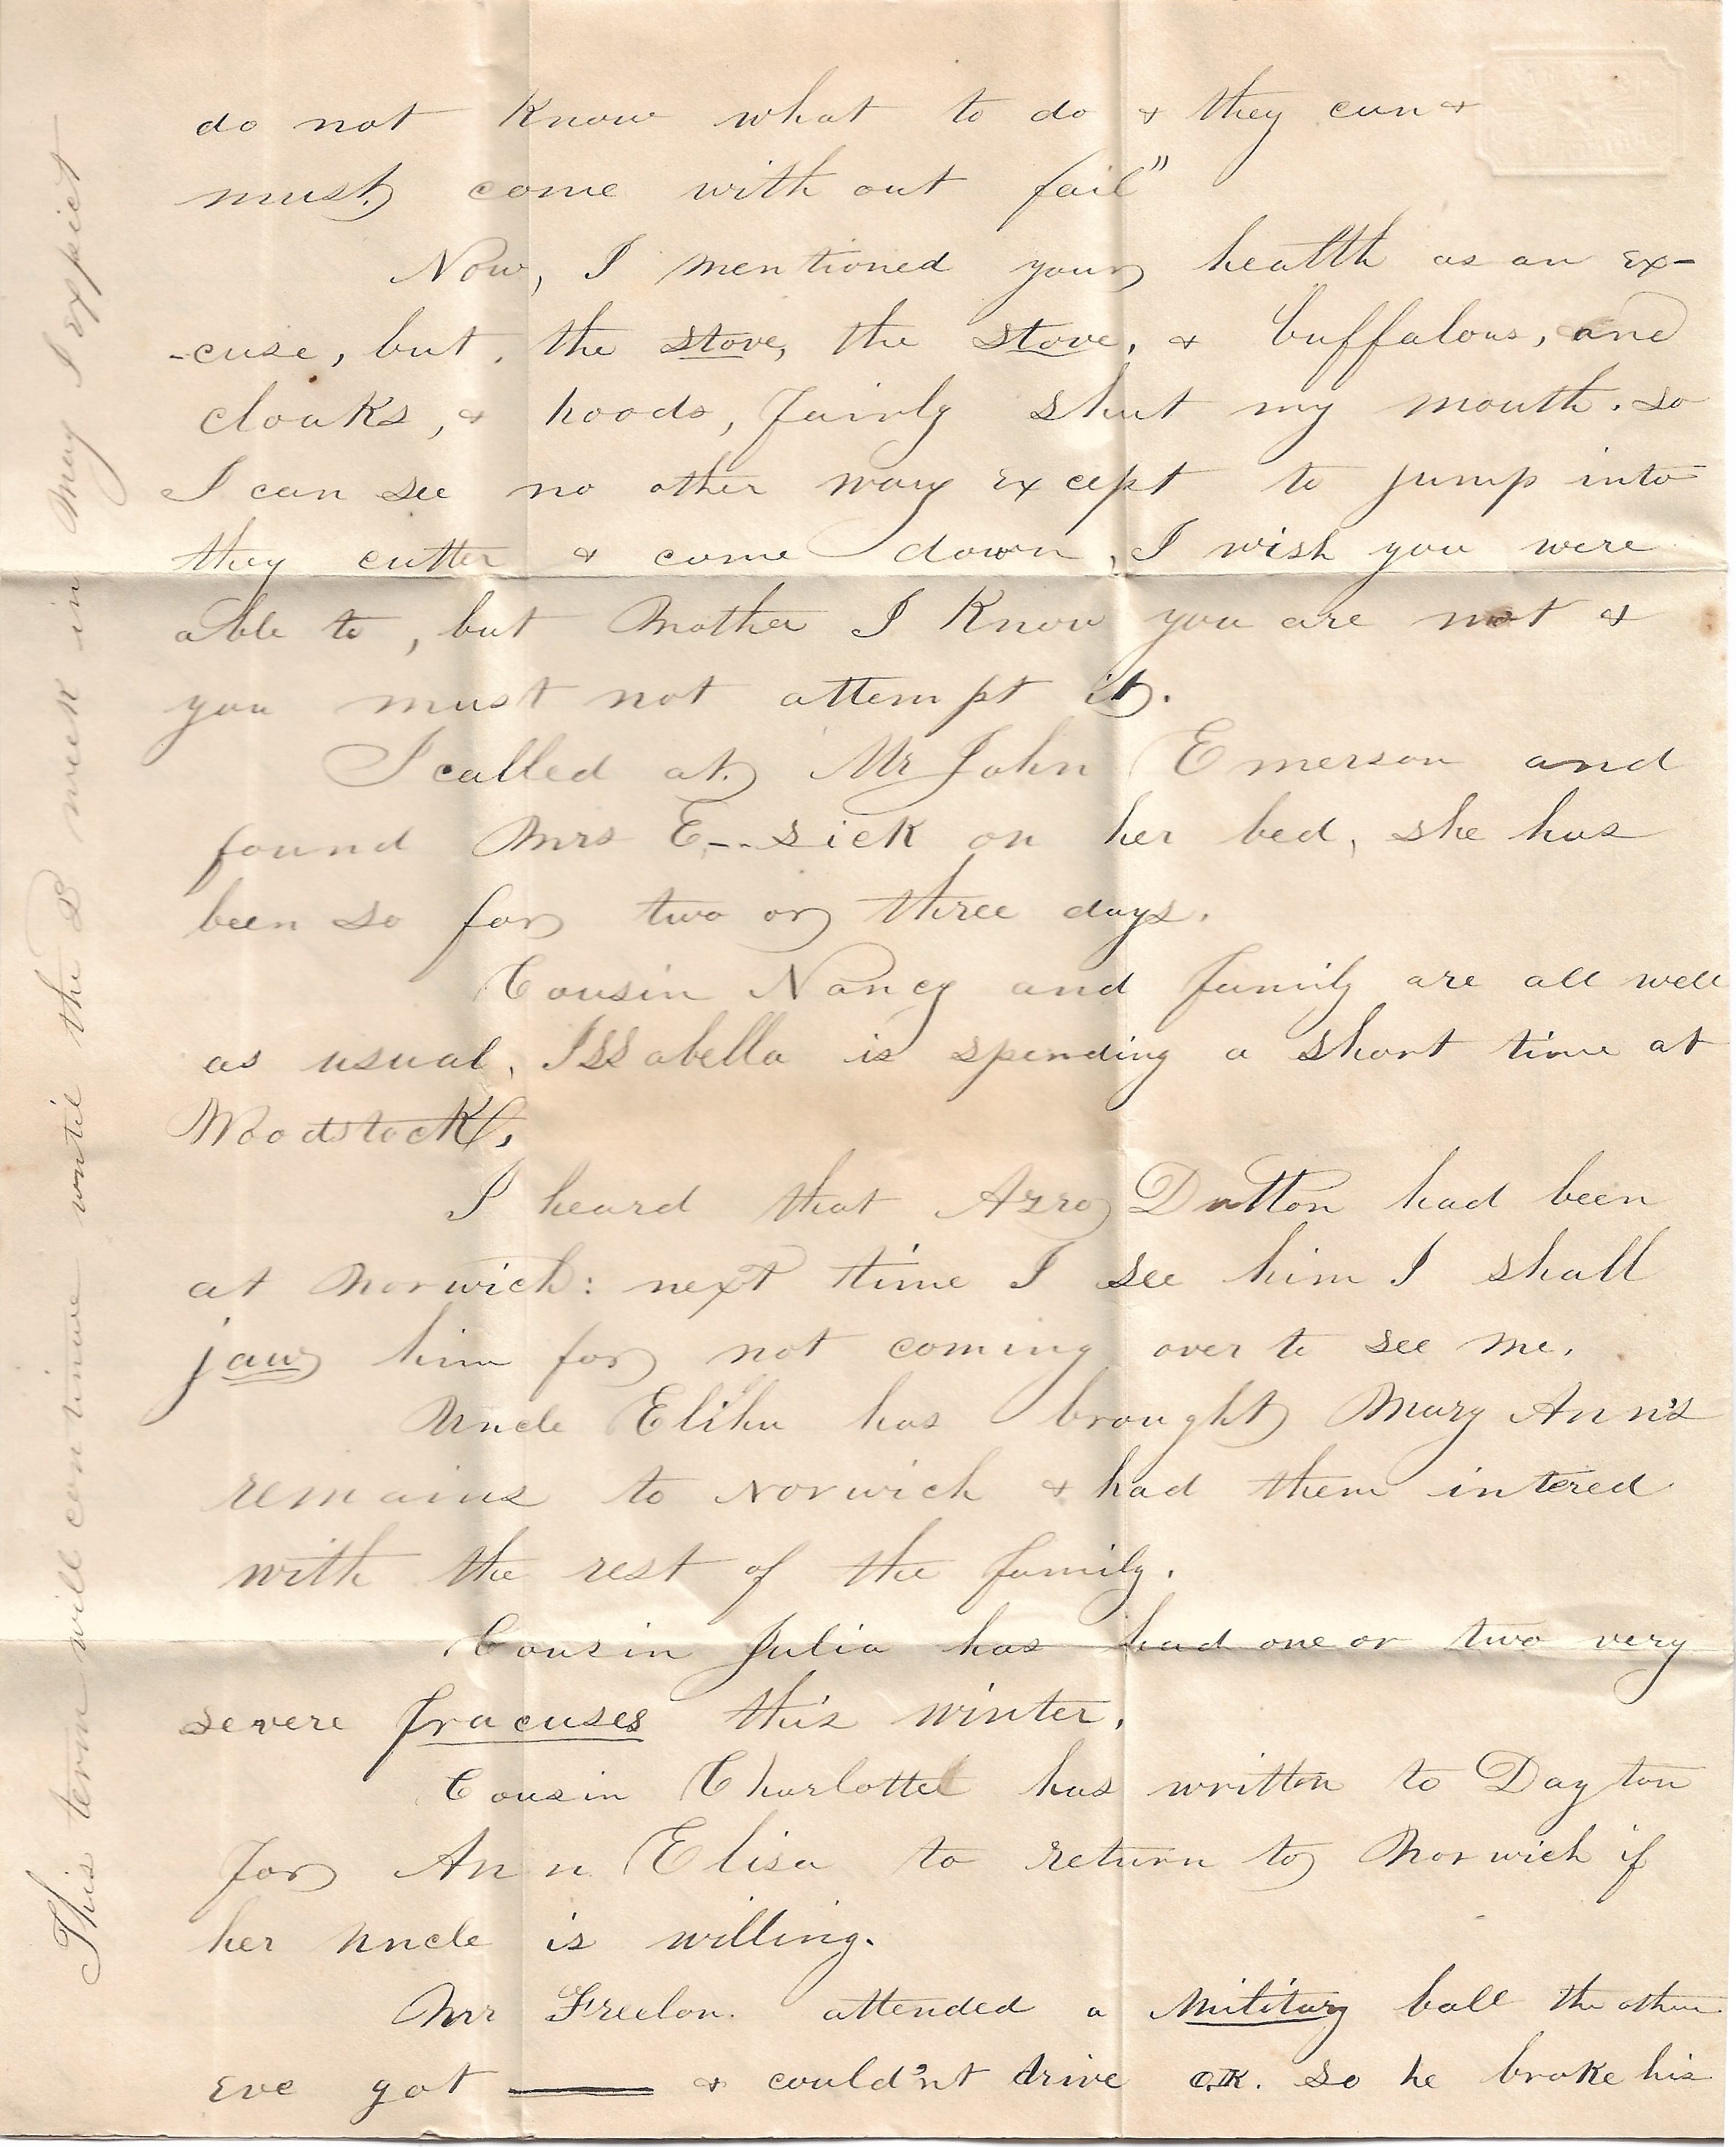 do not know what to do & they can &
must come with out fail"
Now, I mentioned your health as an ex-
-cuse, but, the stove, the stove, & buffalous, and
cloaks, & hoods, fairly shut my mouth. so
I can see no other way except to jump into
they cutter & come down, I wish you were
able to, but Mother I know you are not &
you must not attempt it.
I called at Mr John Emerson and
found Mrs E-- sick on her bed, she has
been so for two or three days.
Cousin Nancy and family are all well
as usual, Issabella is spending a short time at
Woodstock,
I heard that Azro Dutton had been
at Norwich: next time I see him I shall
jaw him for not coming over to see me.
Uncle Elihu has brought Mary Ann's
remains to Norwich & had them intered
with the rest of the family.
Cousin Julia has had one or two very
severe fracuses this winter.
Cousin Charlotte has written to Dayton
for Ann Elisa to return to Norwich if
her uncle is willing.
Mr Freelon. attended a Military ball the other
eve got —— & could'nt drive O.K. so he broke his
This term will continue until the 2 week in May I expect